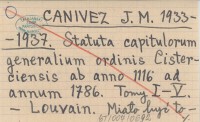 CANIVEZ J.M. 1933-
-1937. Statuta capitulorum
generalium ordinis Cister-
ciensis ab anno 1116 ad
annum 1786. Tomy I-V.
- Louvain. Miało być to-